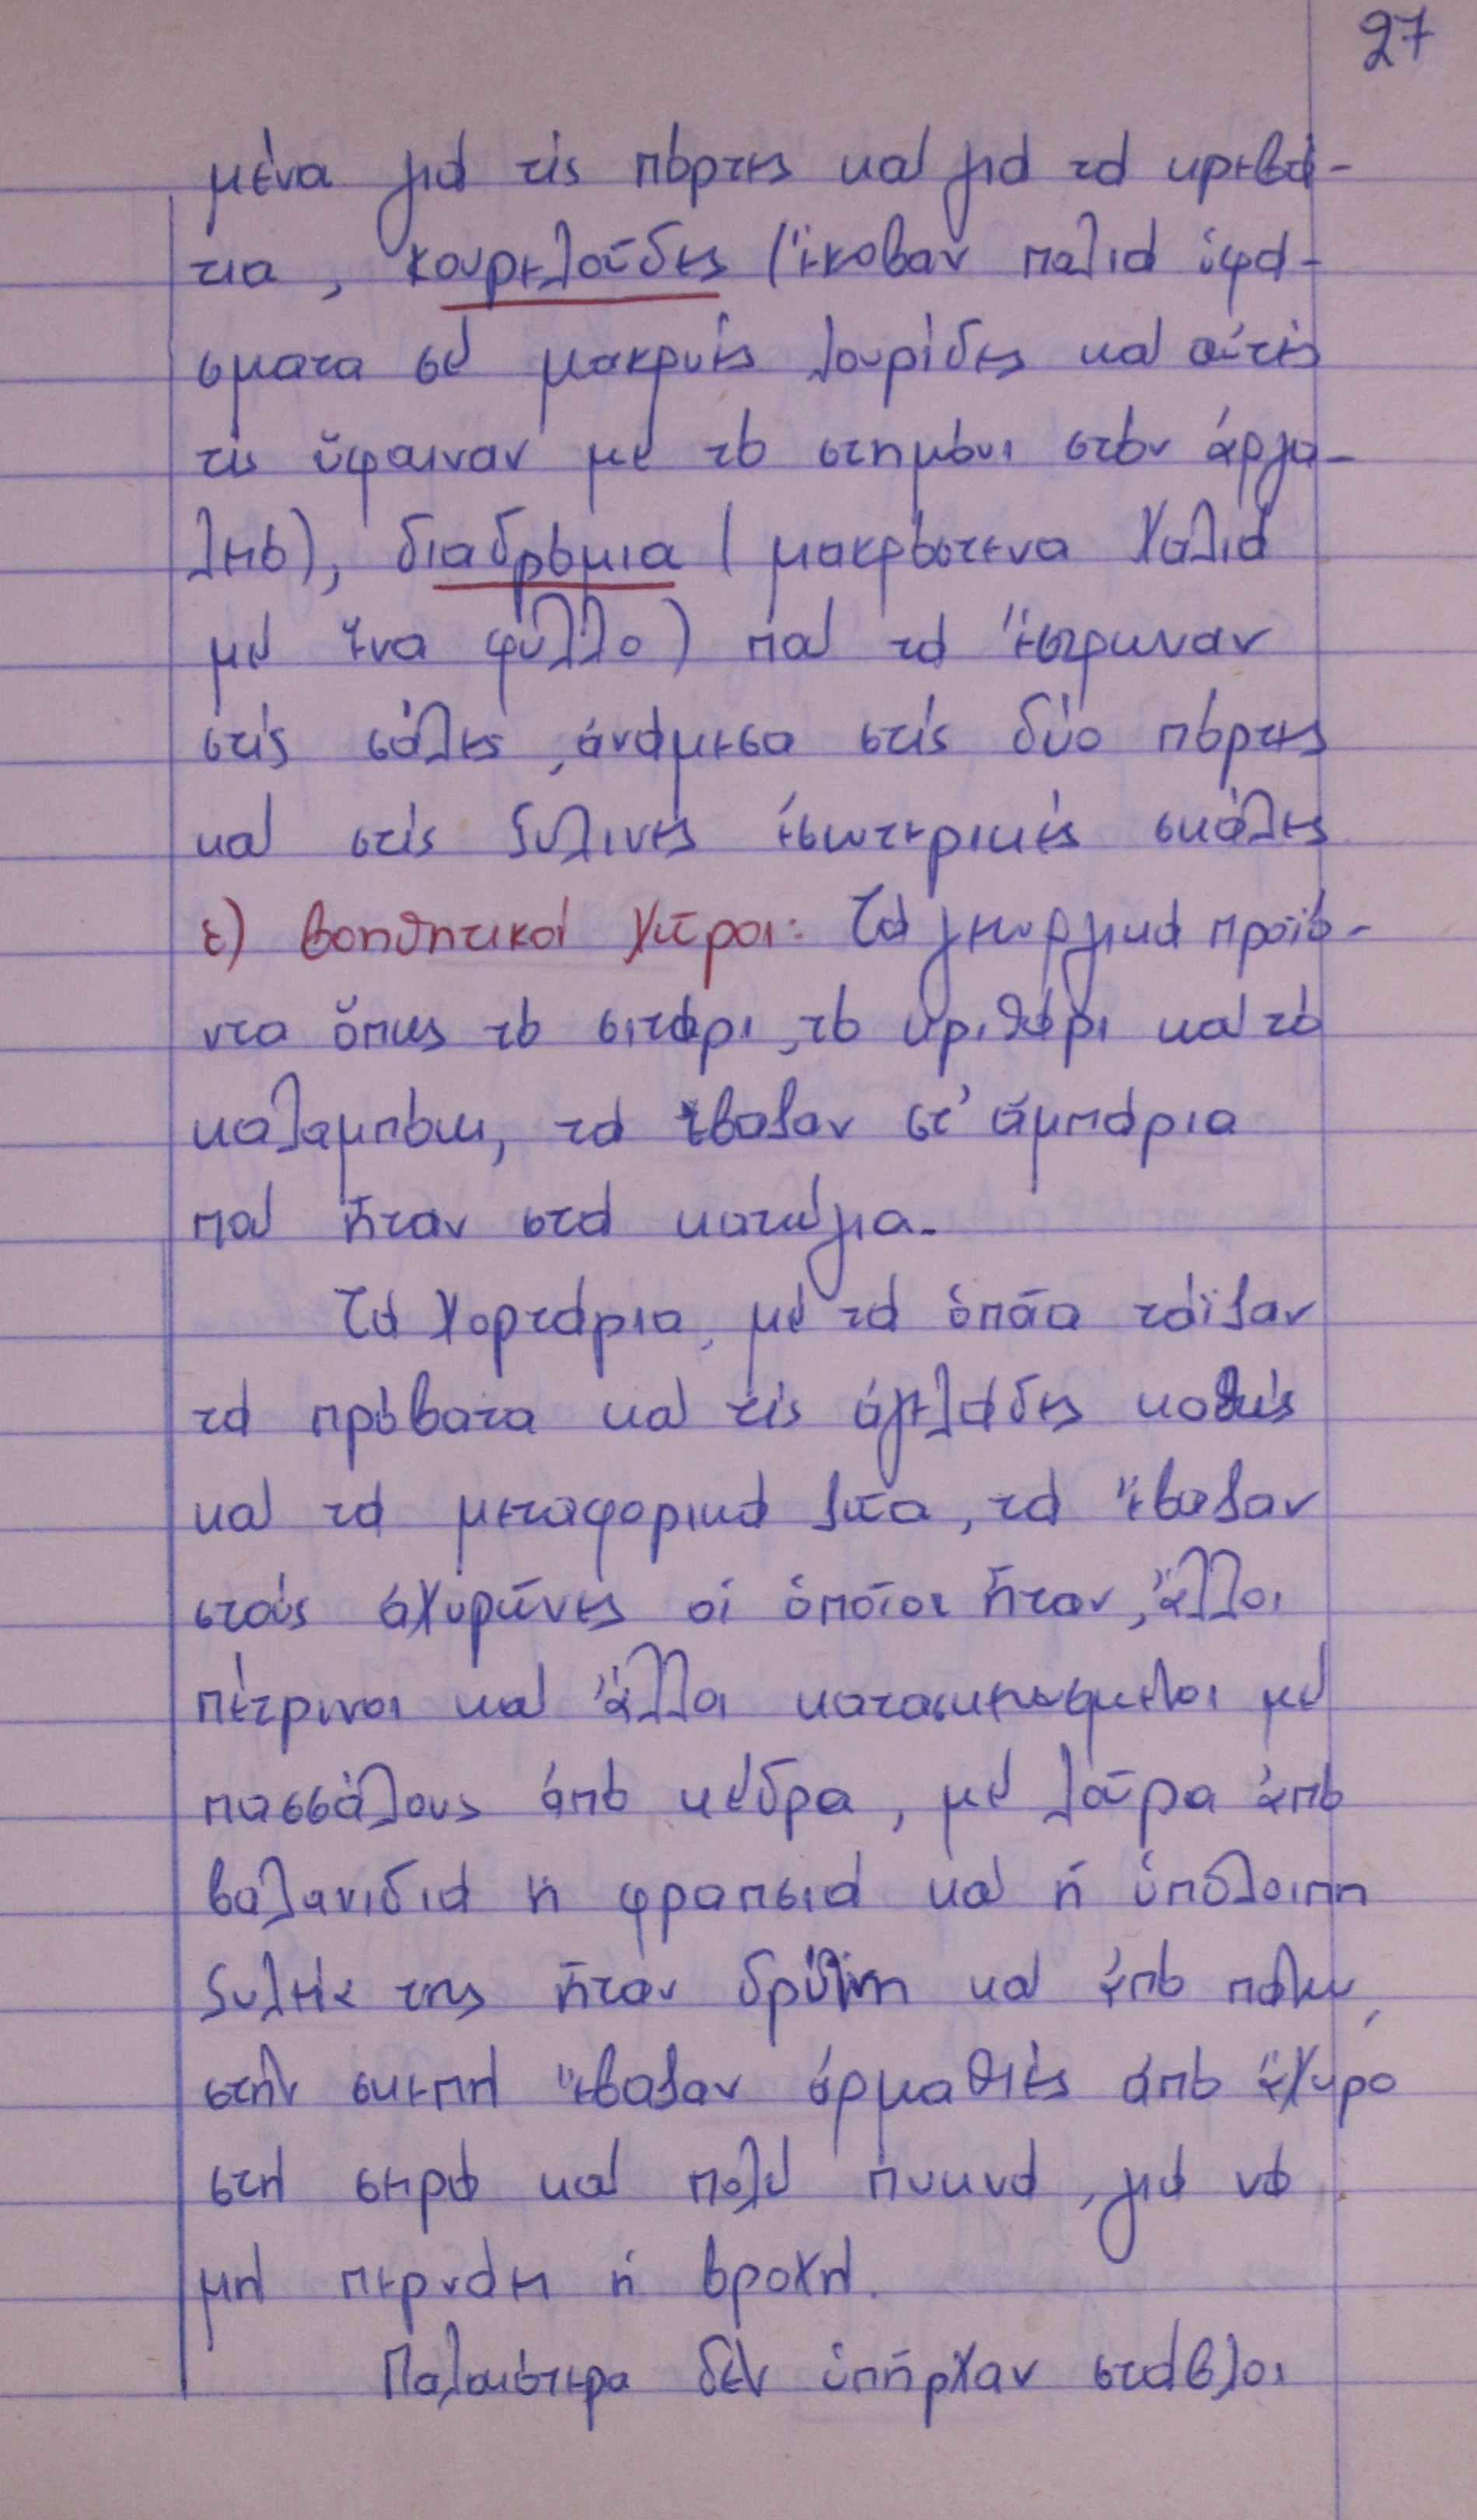 27
μένα γιά τίς πόρτες καί γιά τά κρεβά-
τια, κουρελοῦδες (ἔκοβαν παλιά ὑφά-
σματα σέ μακρυές λουρίδες καί αὐτές
τίς ὕφαιναν μέ τό στημόνι στόν ἀργα-
λειό), διαδρόμια (μακρόστενα χαλιά
μέ ἕνα φύλλο) πού τά ἔστρωναν
στίς σάλες, ἀνάμεσα στίς δύο πόρτες
καί στίς ξύλινες ἐσωτερικές σκάλες
ε) βοηθητικοί χῶροι: Τά γεωργικά προϊό-
ντα ὅπως τό σιτάρι, τό κριθάρι καί τό
καλαμπόκι, τά ἔβαζαν στ' ἀμπάρια
πού ἦταν στά κατώγια.
Τά χορτάρια, μέ τά ὁποῖα τάϊζαν
τά πρόβατα καί τίς ἀγελάδες καθώς
καί τά μεταφορικά ζῶα, τά ἔβαζαν
στούς ἀχυρῶνες οἱ ὁποῖοι ἦταν, ἄλλοι
πέτρινοι καί ἄλλοι κατασκευασμένοι μέ
πασσάλους ἀπό κέδρα, μέ λοῦρα ἀπό
βαλανιδιά ἤ φραπσιά καί ἡ ὑπόλοιπη
ξυλεία της ἦταν δρύϊνη καί ἀπό πάνω,
στήν σκεπή ἔβαζαν ἁρμαθιές ἀπό ἄχυρο
στή σειρά καί πολύ πυκνά, γιά νά
μή περνάει ἡ βροχή.
Παλαιότερα δέν ὑπῆρχαν στάβλοι